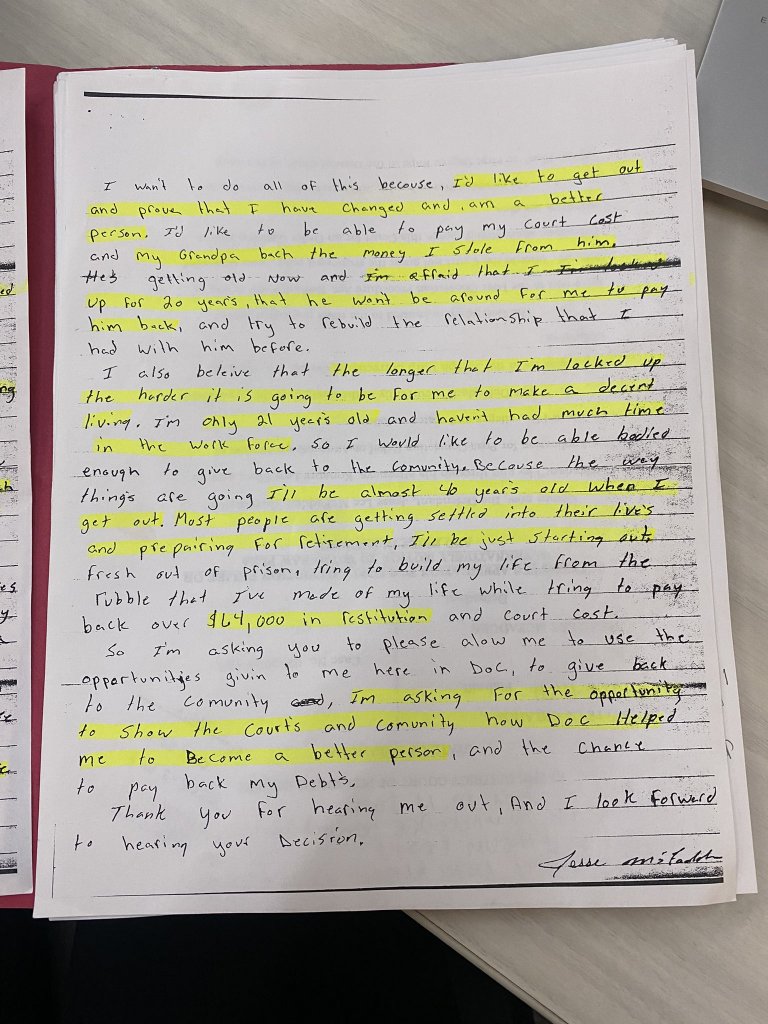 I want to do all of this becouse, I'd like to get out
and prove that I have changed and, am a better
person. I'd like to be able to pay my court cost
and my Grandpa back the money I stole from him.
He's getting old now and I'm afraid that I
up for 20 year's, that he wont be around for me to pay
him back, and try to rebuild the relationship that I
had with him before.
I also beleive that the longer that I'm locked up
the harder it is going to be for me to make a decent
living. I'm only 21 year's old and haven't had much time
in the work force. So I would like to be able bodied
enough to give back to the comunity. Becouse the way
thing's are going I'll be almost 40 year's old when I
get out. Most people are getting settled into their live's
and prepairing for retirement, I'll be just starting out,
fresh out of prison, tring to build my life from the
rubble that I've made of my life while tring to pay
back over $64,000 in restitution and court cost.
So I'm asking you to please alow me to use the
opportunityes givin to me here in DOC, to give back
to the comunity and, Im asking for the opportunity
to show the court's and comunity how DOC Helped
me to Become a better person, and the chance
to pay back my Debt's.
Thank you for hearing me out, And I look forward
to hearing your Decision.
Jesse McFadden
E
ed
ng
y
h
es
y.